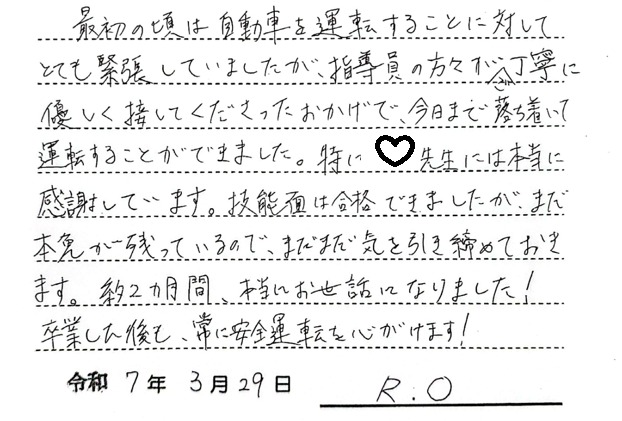 最初の頃は自動車を運転することに対して
とても緊張していましたが、指導員の方々がご丁寧に
優しく接してくださったおかげで、今日まで落ち着いて
運転することができました。特に♡先生には本当に
感謝しています。技能面は合格できましたが、まだ
本免が残っているので、まだまだ気を引き締めておき
ます。約2カ月間、本当にお世話になりました!
卒業した後も、常に安全運転を心がけます!
令和 7年 3月29日 R.O